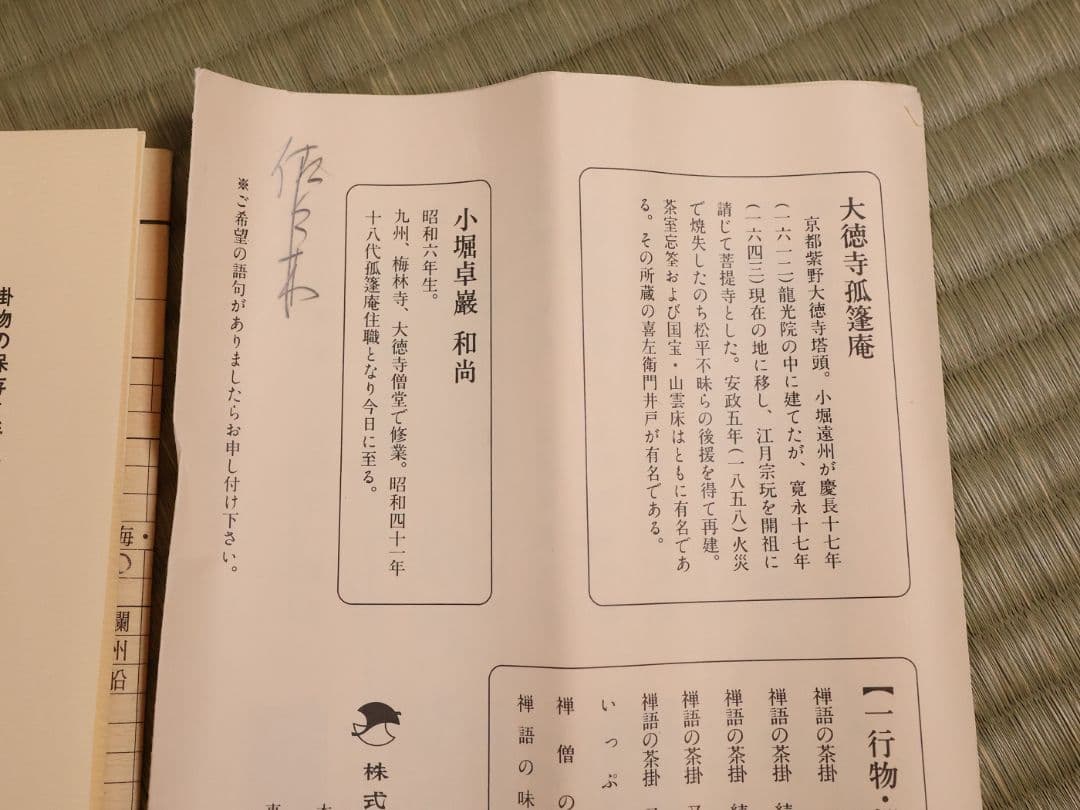 大徳寺孤篷庵
京都紫野大徳寺塔頭。小堀遠州が慶長十七年
(一六一二)龍光院の中に建てたが、寛永十七年
(一六四三)現在の地に移し、江月宗玩を開祖に
請じて菩提寺とした。安政五年(一八五八)火災
で焼失したのち松平不昧らの後援を得て再建。
茶室忘筌および国宝・山雲床はともに有名であ
る。その所蔵の喜左衛門井戸が有名である。
小堀卓巖 和尚
昭和六年生。
九州、梅林寺、大徳寺僧堂で修業。昭和四十一年
十八代孤篷庵住職となり今日に至る。
※ご希望の語句がありましたらお申し付け下さい。
【一行物・
禅語の茶掛
禅語の茶掛
禅語の茶掛 続
禅語の茶掛 又
禅語の茶掛 又
いっぷ
禅僧の
禅語の味
株式
掛物の保存
海の
瀾州沿